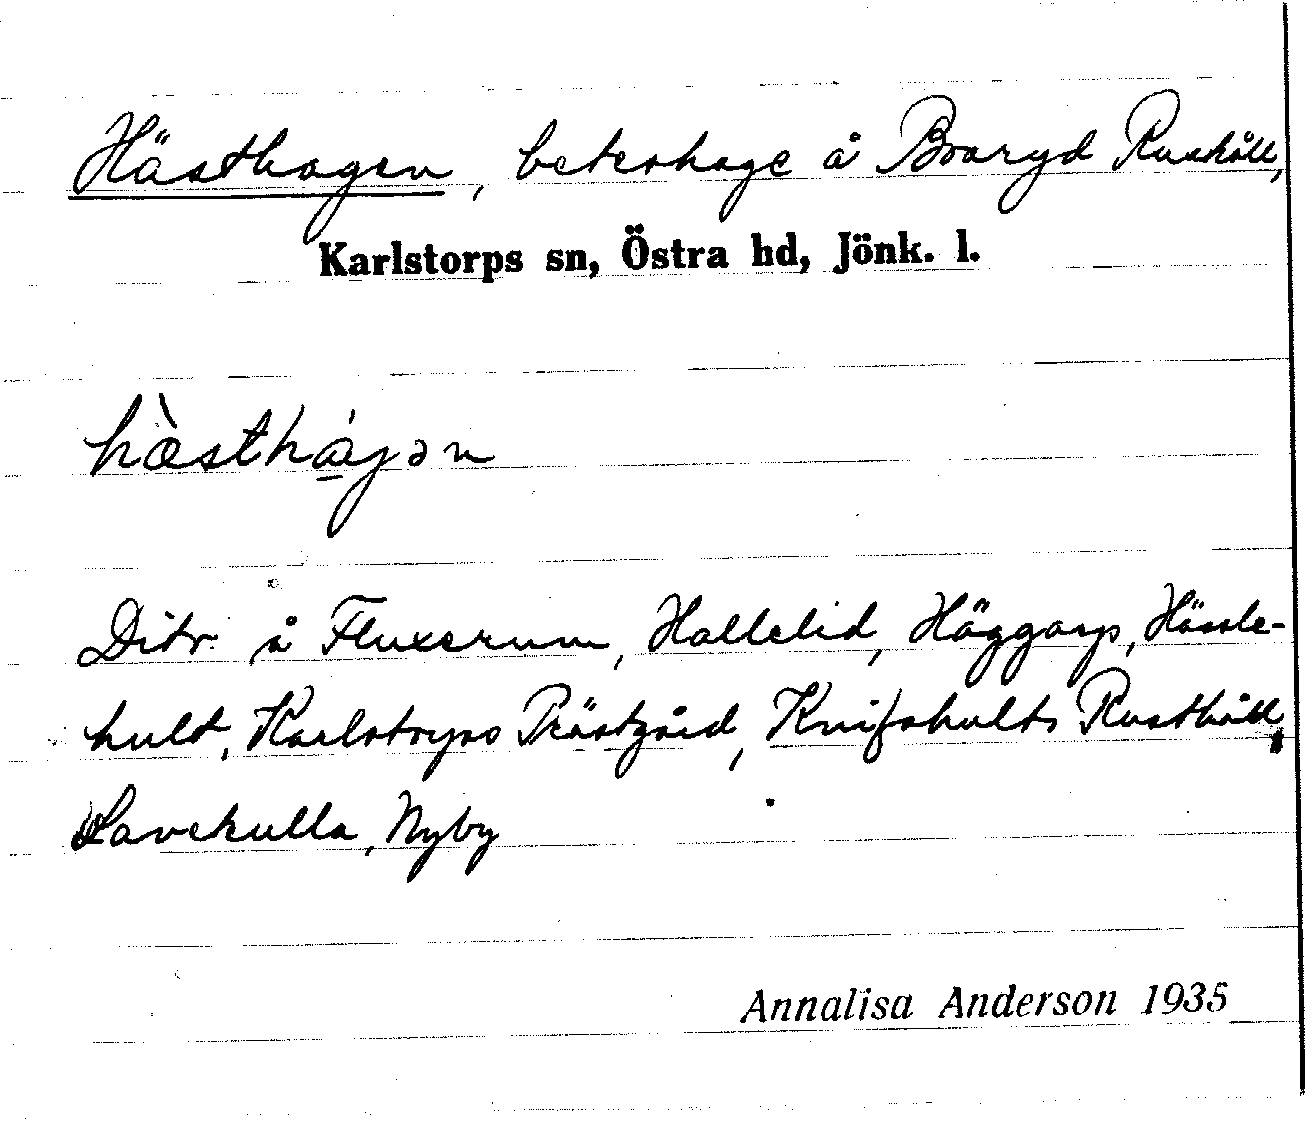 Hästhagen, beteshage å Boaryd Rushåll,
Karlstorps sn, Östra hd, Jönk. l.
hæ̀sthágən
Dito å Fluxerum, Hallelid, Häggarp, Hässle-
hult, Karlstorps Prästgård, Knifshults Rusthåll,
Lavekulla, Nyby
Annalisa Anderson 1935